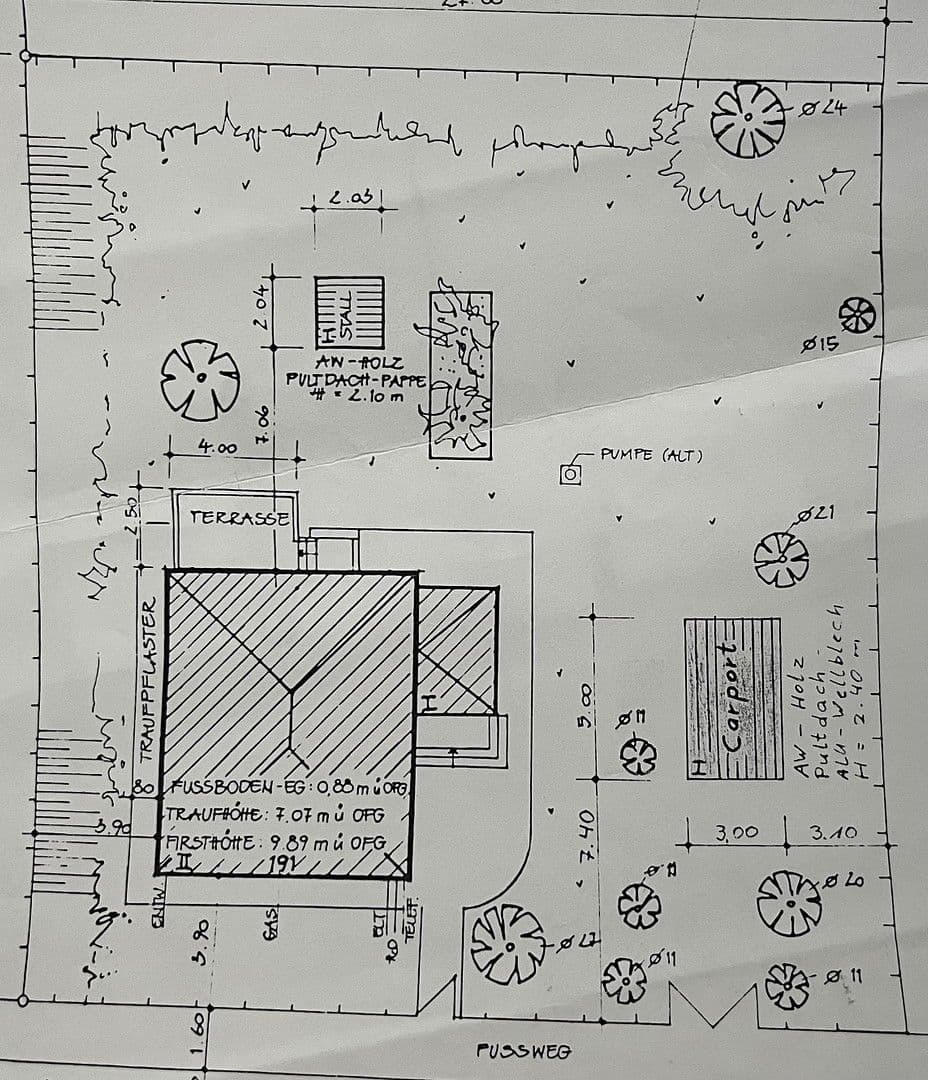 Ø24
2.03
2.04
H
STALL
AW-HOLZ
PULTDACH-PAPPE
H = 2.10 m
Ø15
7.06
4.00
PUMPE (ALT)
2.50
TERRASSE
Ø21
TRAUFPFLASTER
H
5.00
H
Carport
AW-Holz
Pultdach-
Alu-Wellblech
H = 2.40 m
80
FUSSBODEN-EG: 0,88 m ü OFG
3.90
TRAUFHÖHE: 7.07 m ü OFG
FIRSTHÖHE: 9.89 m ü OFG
II
191
7.40
3,00
3.10
ENTW.
3.90
GAS
ELT
TELEF
Ø11
Ø11
1.60
FUSSWEG